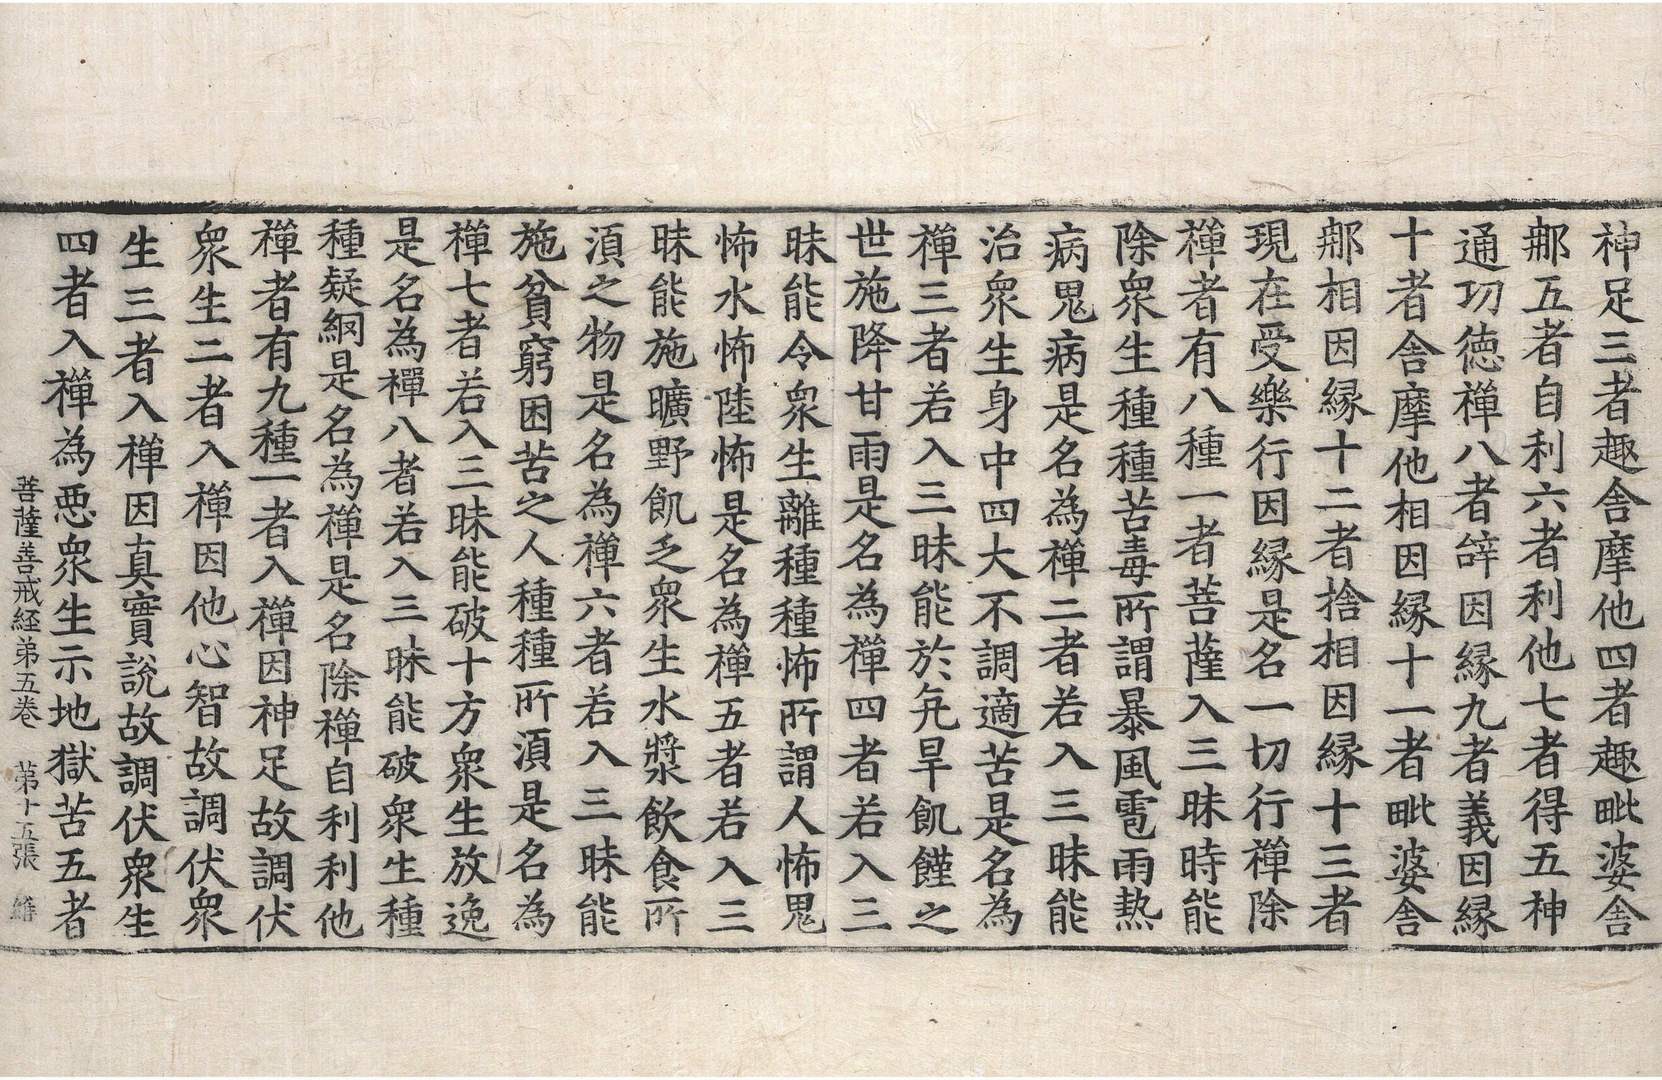 神足三者趣舎摩他四者趣毗婆舎
那五者自利六者利他七者得五神
通功徳禅八者辞因縁九者義因縁
十者舎摩他相因縁十一者毗婆舎
那相因縁十二者捨相因縁十三者
現在受樂行因縁是名一切行禅除
禅者有八種一者菩薩入三昧時能
除衆生種種苦毒所謂暴風雹雨熱
病鬼病是名為禅二者若入三昧能
治衆生身中四大不調適苦是名為
禅三者若入三昧能於亢旱飢饉之
世施降甘雨是名為禅四者若入三
昧能令衆生離種種怖所謂人怖鬼
怖水怖陸怖是名為禅五者若入三
昧能施曠野飢乏衆生水漿飲食所
須之物是名為禅六者若入三昧能
施貧窮困苦之人種種所須是名為
禅七者若入三昧能破十方衆生放逸
是名為禅八者若入三昧能破衆生種
種疑網是名為禅是名除禅自利利他
禅者有九種一者入禅因神足故調伏
衆生二者入禅因他心智故調伏衆
生三者入禅因真實説故調伏衆生
四者入禅為惡衆生示地獄苦五者
菩薩善戒経第五巻 第十五張 維